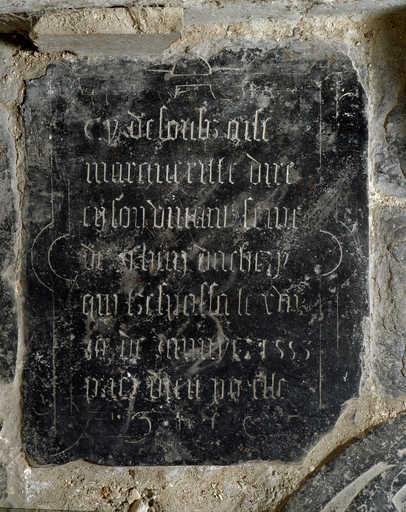 cy desoubz gist
margueritte dite
cyson vivant feme
de
qui trespassa le
de janvier 1553
priez dieu po elle